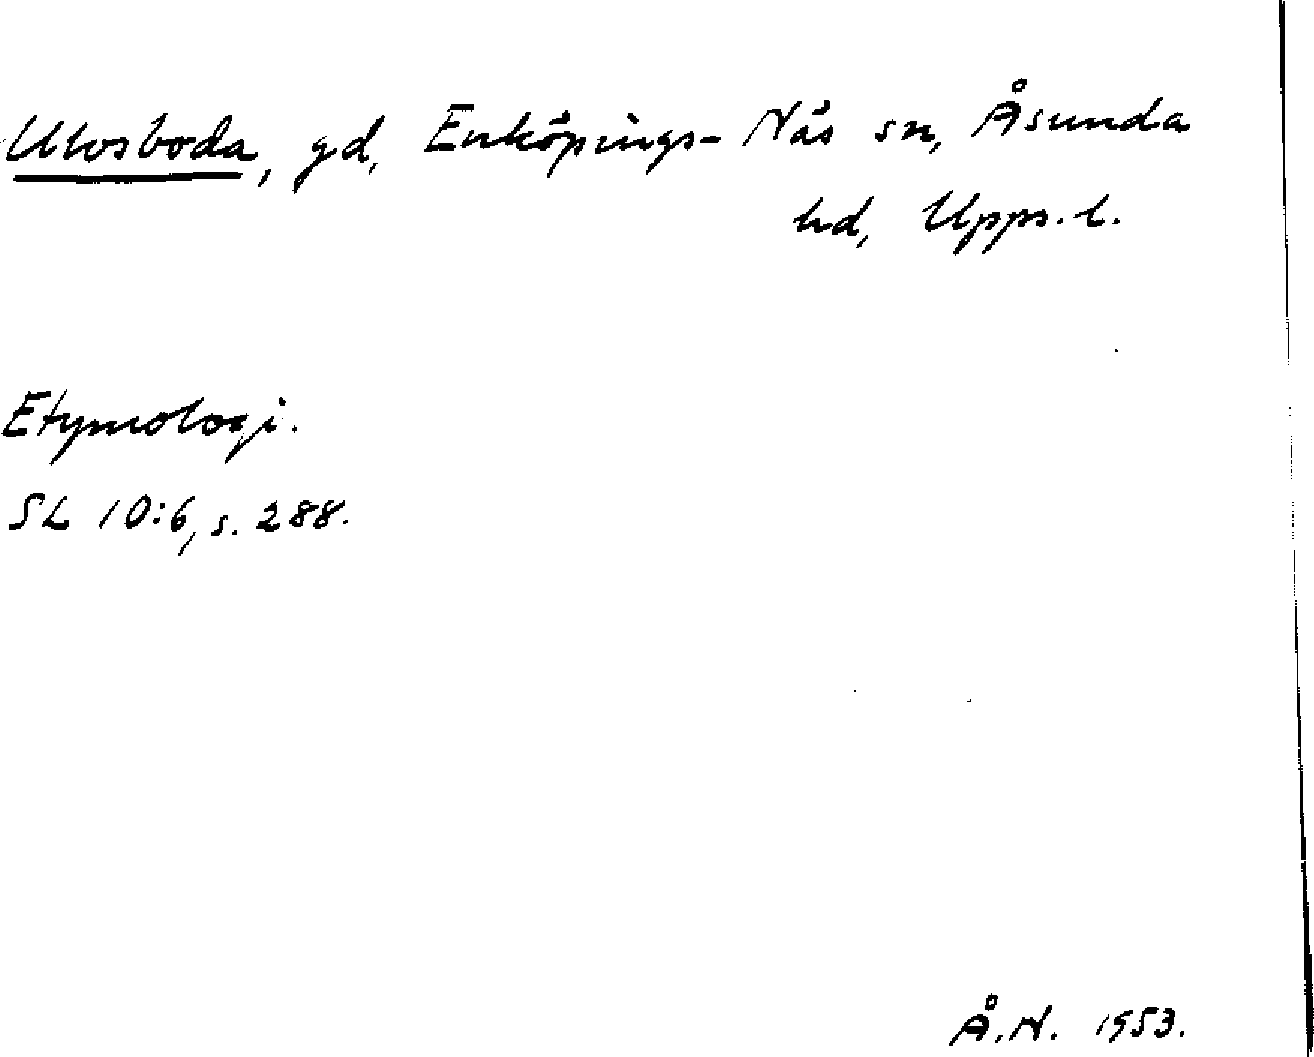 Ulvsboda, gd, Enköpings-Näs sn, Åsunda
hd, Upps. l.
Etymologi.
SL 10:6, s. 288.
Å.N. 1953.